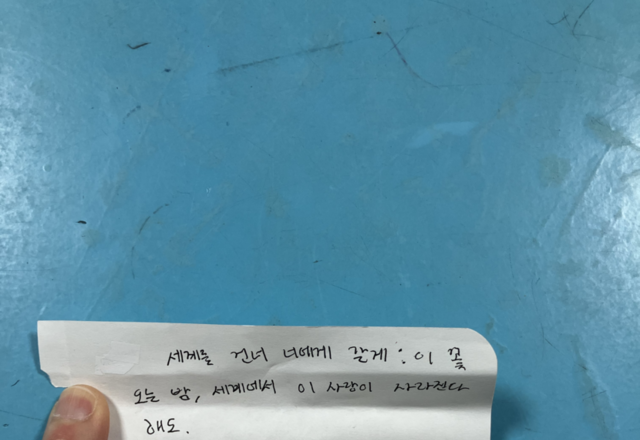 세계를 건너 너에게 갈게: 이 꽃
오늘 밤, 세계에서 이 사랑이 사라진다
해도.